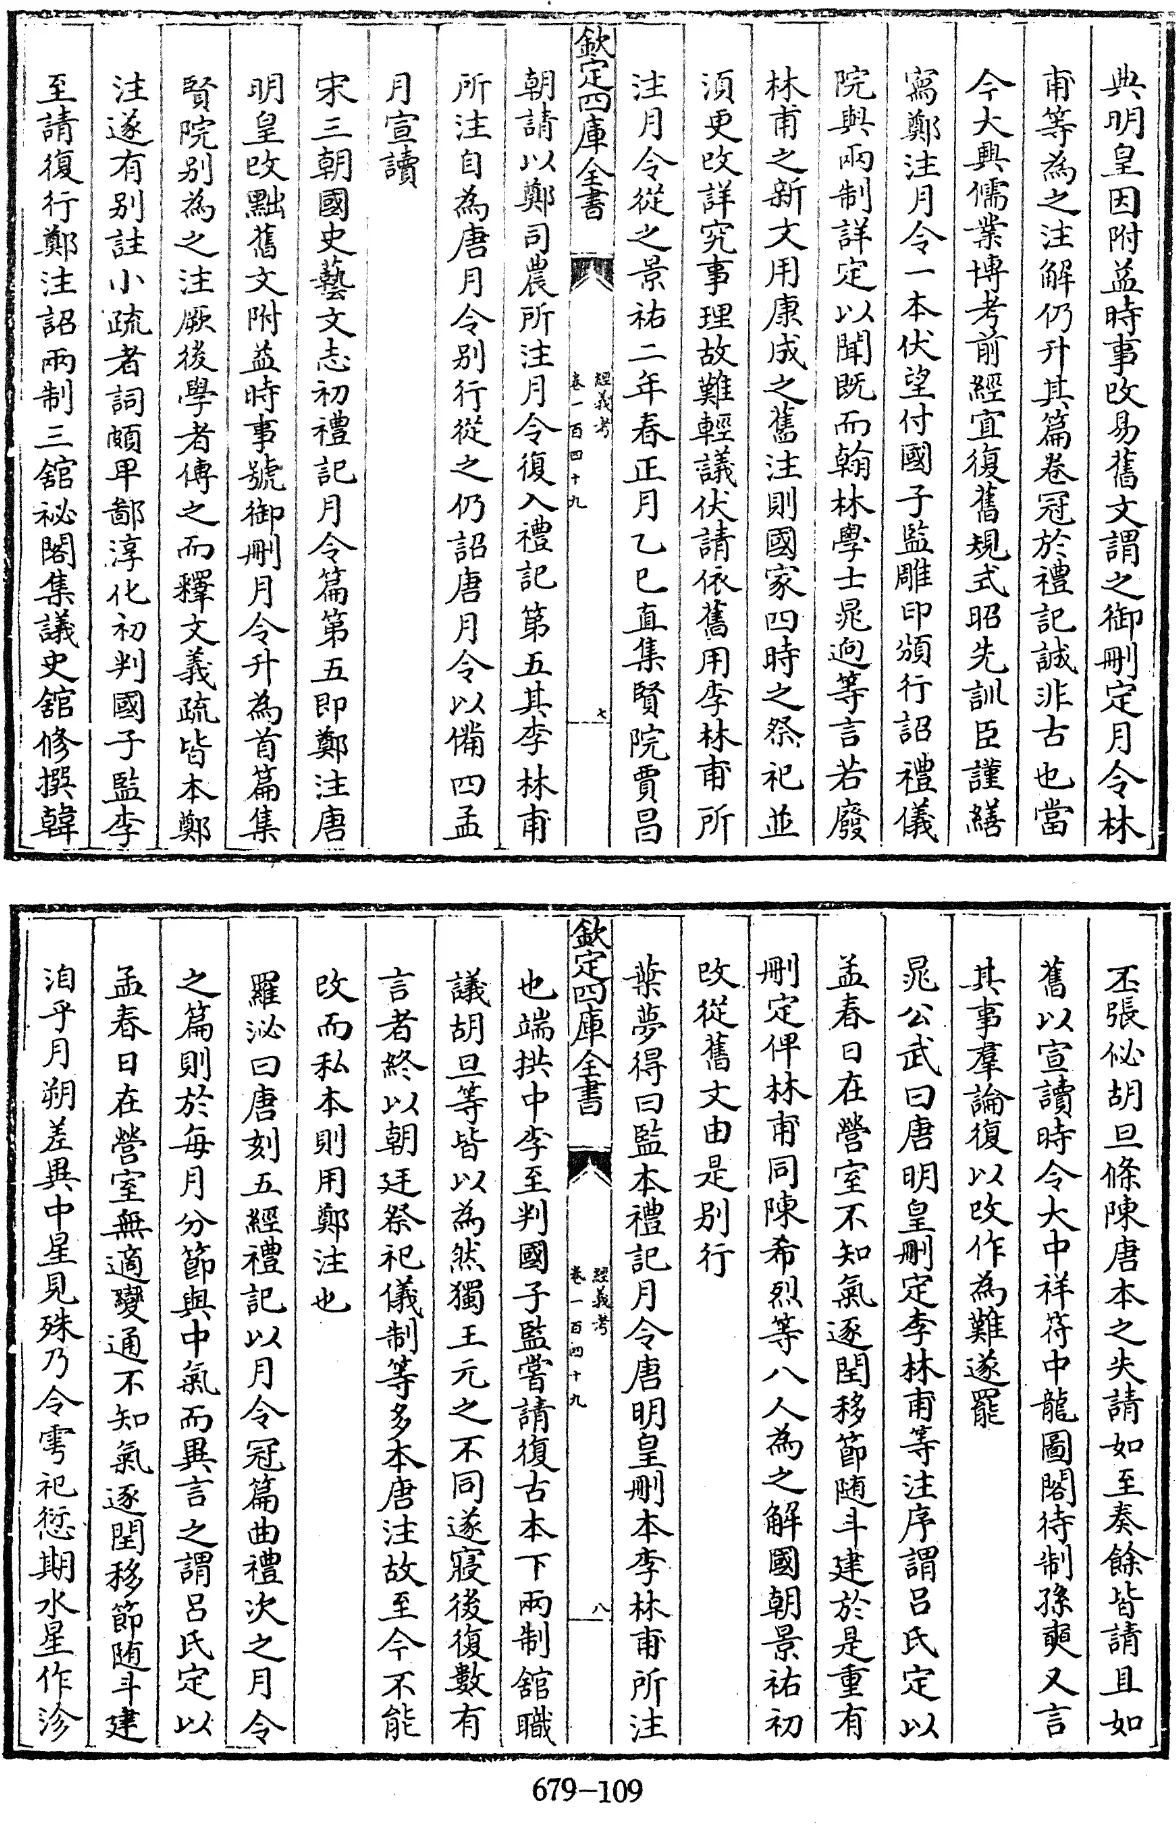 典明皇因附益時事改易舊文謂之御刪定月令林
甫等為之注解仍升其篇卷冠於禮記誠非古也當
今大興儒業博考前經宜復舊規式昭先訓臣謹繕
寫鄭注月令一本伏望付國子監雕印頒行詔禮儀
院與兩制詳定以聞既而翰林學士晁迥等言若廢
林甫之新文用康成之舊注則國家四時之祭祀並
須更改詳究事理故難輕議伏請依舊用李林甫所
注月令從之景祐二年春正月乙巳直集賢院賈昌
欽定四庫全書
經義考
卷一百四十九
七
朝請以鄭司農所注月令復入禮記第五其李林甫
所注自為唐月令别行從之仍詔唐月令以備四孟
月宣讀
宋三朝國史藝文志初禮記月令篇第五即鄭注唐
明皇改黜舊文附益時事號御刪月令升為首篇集
賢院别為之注厥後學者傳之而釋文義疏皆本鄭
注遂有别註小疏者詞頗卑鄙淳化初判國子監李
至請復行鄭注詔兩制三舘祕閣集議史舘修撰韓
丕張佖胡旦條陳唐本之失請如至奏餘皆請且如
舊以宣讀時令大中祥符中龍圖閣待制孫奭又言
其事羣論復以改作為難遂罷
晁公武曰唐明皇刪定李林甫等注序謂吕氏定以
孟春日在營室不知氣逐閏移節随斗建於是重有
刪定俾林甫同陳希烈等八人為之解國朝景祐初
改從舊文由是别行
葉夢得曰監本禮記月令唐明皇刪本李林甫所注
欽定四庫全書
經義考
卷一百四十九
八
也端拱中李至判國子監嘗請復古本下兩制舘職
議胡旦等皆以為然獨王元之不同遂寢後復數有
言者終以朝廷祭祀儀制等多本唐注故至今不能
改而私本則用鄭注也
羅泌曰唐刻五經禮記以月令冠篇曲禮次之月令
之篇則於每月分節與中氣而異言之謂吕氏定以
孟春日在營室無適變通不知氣逐閏移節随斗建
洎乎月朔差異中星見殊乃令雩祀愆期水星作沴
679-109